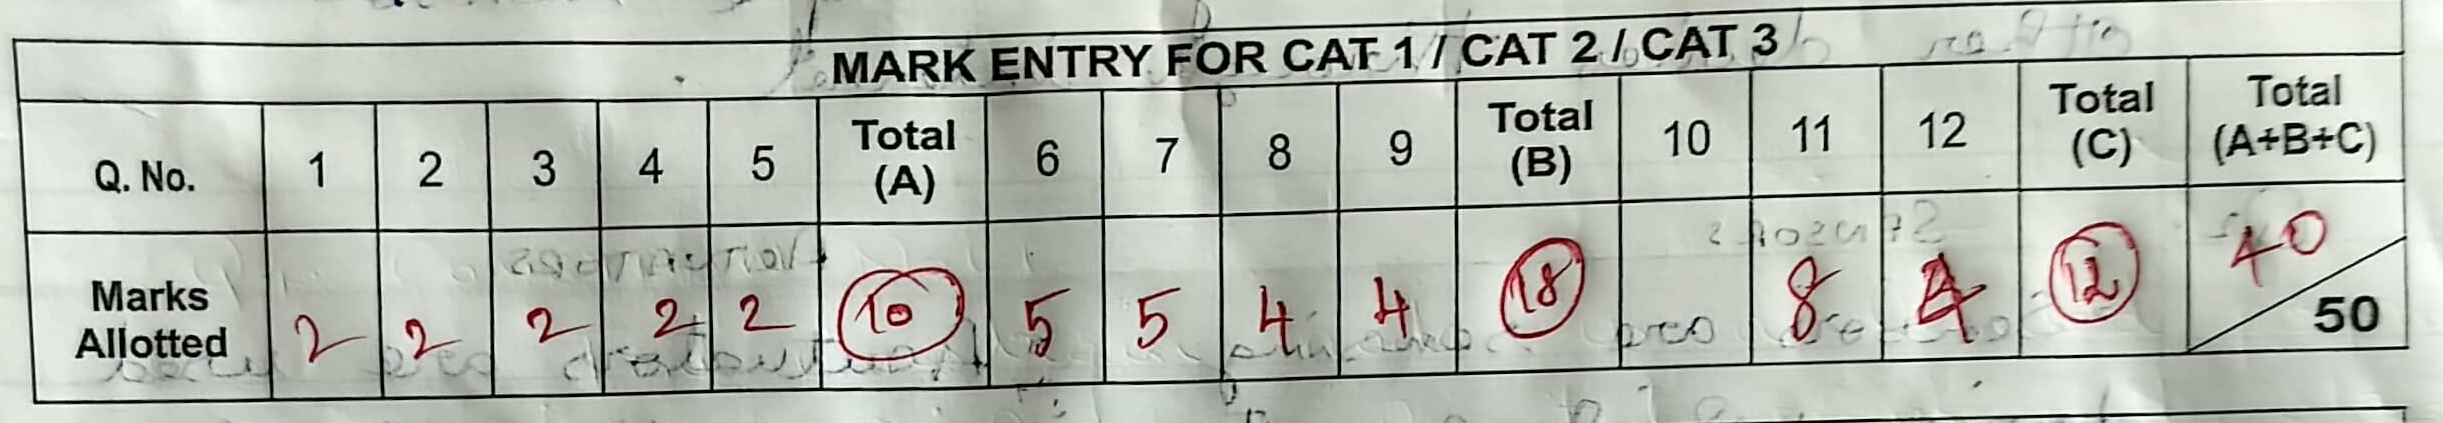 MARK ENTRY FOR CAT 1 / CAT 2 / CAT 3
Q. No. 1 2 3 4 5 Total (A) 6 7 8 9 Total (B) 10 11 12 Total (C) Total (A+B+C)
Marks Allotted 2 2 2 2 2 10 5 5 4 4 18 8 4 12 40 / 50